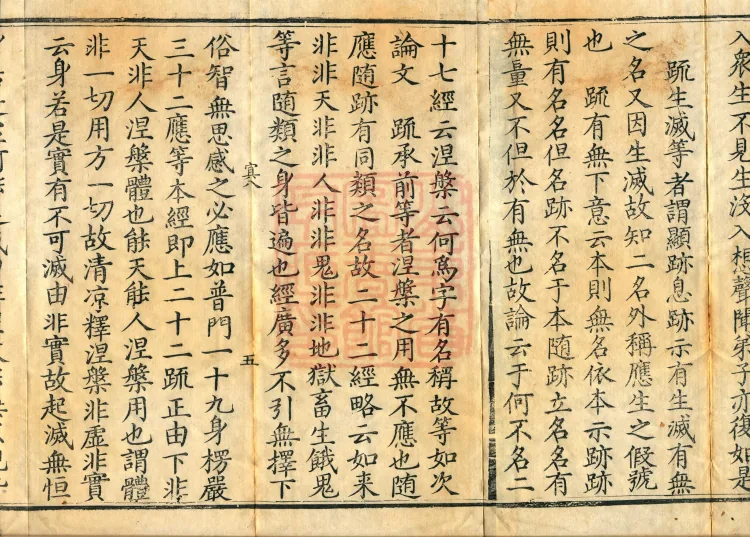 入衆生不見生没入想聲聞弟子亦復如是
䟽生滅等者謂顯跡息跡示有生滅有無
之名又因生滅故知二名外稱應生之假號
也　䟽有無下意云本則無名依本示跡跡
則有名名但名跡不名于本随跡立名名有
無量又不但於有無也故論云于何不名二
十七經云涅槃云何爲字有名稱故等如次
論文　䟽承前等者涅槃之用無不應也随
應随跡有同類之名故二十二經略云如来
非非天非非人非非鬼非非地獄畜生餓鬼
等言随類之身皆遍也經廣多不引無擇下
五
俗智無思感之必應如普門一十九身楞嚴
三十二應等本經即上二十二䟽正由下非
天非人涅槃體也能天能人涅槃用也謂體
非一切用方一切故清凉釋涅槃非虚非實
云身若是實有不可滅由非實故起滅無恒